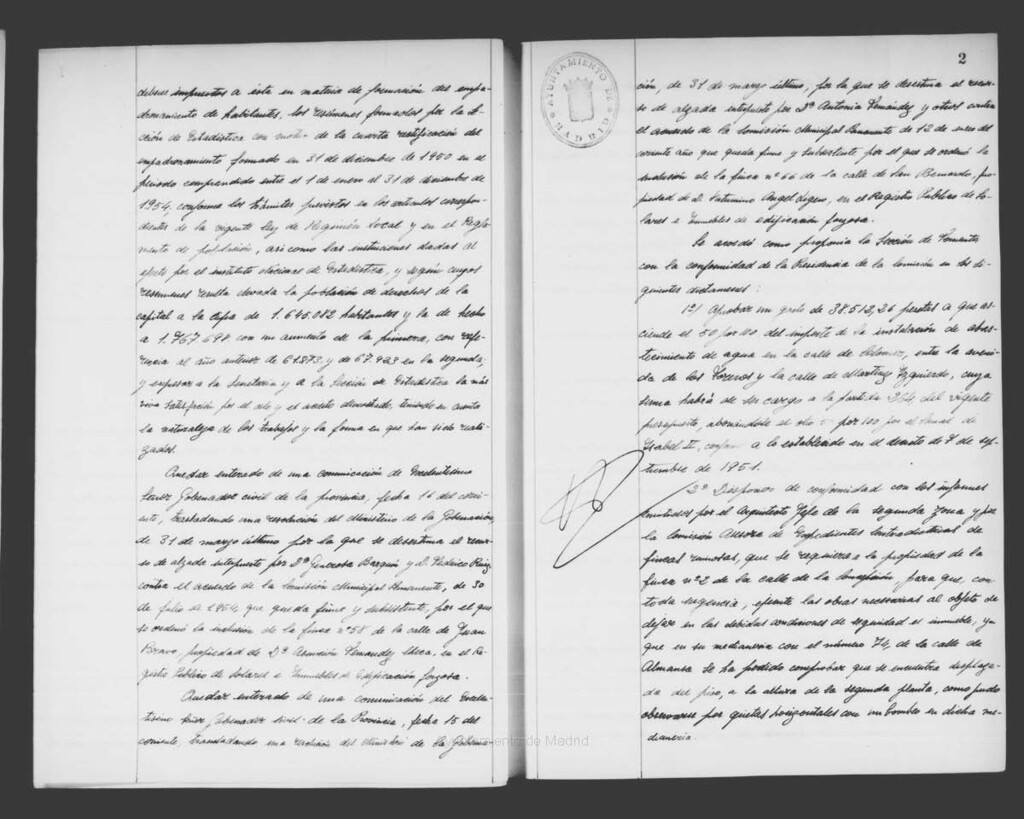 deberes impuestos a éste en materia de formación del empa-
dronamiento de habitantes, los resúmenes formados por la Sec-
ción de Estadística con motivo de la cuarta rectificación del
empadronamiento formado en 31 de diciembre de 1950 en el
periodo comprendido entre el 1 de enero el 31 de diciembre de
1954, conforme los trámites previstos en los artículos correspon-
dientes de la vigente Ley de Régimen Local y en el Regla-
mento de población, así como las instrucciones dadas al
efecto por el Instituto Nacional de Estadística, y según cuyos
resúmenes resulta elevada la población de derecho de la
capital a la cifra de 1.645.082 habitantes y la de hecho
a 1.767.698 con un aumento de la primera, con refe-
rencia al año anterior de 61.873 y de 67.423 en la segunda;
y expresar a la Secretaría y a la Sección de Estadística la más
viva satisfacción por el celo y el acierto demostrado, teniendo en cuenta
la naturaleza de los trabajos y la forma en que han sido reali-
zados.
Quedar enterado de una comunicación de Excelentísimo
Señor Gobernador civil de la provincia, fecha 16 del corri-
ente, trasladando una resolución del Ministerio de la Gobernación,
de 31 de marzo último por la que se desestima el recur-
so de alzada interpuesto por Dª Generosa Barquín y D. Federico Ruiz
contra el acuerdo de la Comisión Municipal Permanente, de 30
de julio de 1954, que queda firme y subsistente, por el que
se ordenó la inclusión de la finca nº 58 de la calle de Juan
Bravo, propiedad de Dª Asunción Fernández, en el Re-
gistro Público de Solares e Inmuebles de Edificación forzosa.
Quedar enterado de una comunicación del Excelen-
tísimo Señor Gobernador Civil de la Provincia, fecha 15 del
corriente, trasladando una resolución del Ministerio de la Goberna-
AYUNTAMIENTO DE MADRID
2
ción, de 31 de marzo último, por la que se desestima el recur-
so de alzada interpuesto por Dª Antonia Fernández y otros contra
el acuerdo de la Comisión Municipal Permanente de 12 de enero del
corriente año que queda firme y subsistente por el que se ordenó la
inclusión de la finca nº 66 de la calle de San Bernardo, pro-
piedad de D. Saturnino Angel, en el Registro Público de So-
lares e Inmuebles de edificación forzosa.
Se acordó como proponía la Sección de Fomento,
con la conformidad de la Presidencia de la Comisión en los si-
guientes dictámenes:
1º/ Aprobar un gasto de 38.512,36 pesetas a que as-
ciende el 50 por 100 del importe de la instalación de abas-
tecimiento de agua en la calle de, entre la aveni-
da de los Toreros y la calle de Martínez Izquierdo, cuya
suma habrá de ser cargo a la partida 364 del vigente
presupuesto, abonándose el otro 50 por 100 por el Canal de
Isabel II, conforme a lo establecido en el decreto de 7 de sep-
tiembre de 1951.
2º Disponer de conformidad con los informes
emitidos por el Arquitecto Jefe de la segunda zona y por
la Comisión Asesora de Expedientes Contradictorios de
fincas ruinosas, que se requiera a la propiedad de la
finca nº 2 de la calle de la Concepción, para que, con
toda urgencia, ejecute las obras necesarias al objeto de
dejar en las debidas condiciones de seguridad el inmueble, ya
que en su medianería con el número 74, de la calle de
Almansa se ha podido comprobar que se encuentra despla-
da del piso, a la altura de la segunda planta, como pudo
observarse por grietas horizontales con un bombeo en dicha me-
dianería.
Ayuntamiento de Madrid